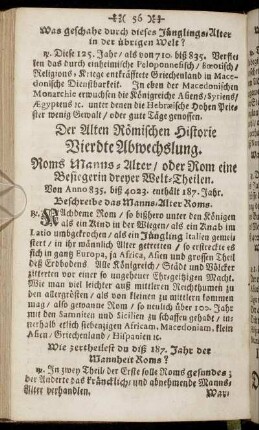 56
Was geschahe durch dieses Jünglings-Alter
in der übrigen Welt?
Diese 125. Jahr/ als von 710. biß 835. Verfiel
len das durch einheimische Peloponnesisch/ Bœotisch/
Religions-Kriege entkräfftete Griechenland in Mace-
donische Dienstbarkeit. In eben der Macedonischen
Monarchie erwuchsen die Königreiche Asiens/ Syriens/
Ægypteus ꝛc. unter denen die Hebræische Hohen Prie-
ster wenig Gewalt/ oder gute Täge genossen.
Der Alten Römischen Historie
Vierdte Abwechslung.
Roms Manns-Alter/ oder Rom eine
Besiegerin dreyer Welt-Theilen.
Von Anno 835. biß 4023. enthält 187. Jahr.
Beschreibe das Manns-Alter Roms.
NAchdeme Rom/ so bißhero unter den Königen
als ein Kind in der Wiegen/ als ein Knab im
Latio umbgekrochen/ als ein Jüngling Italien gemei-
stert/ in ihr männlich Alter getretten/ so erstreckte es
sich in gantz Europa, ja Africa, Asien und grossen Theil
deß Erdbodens. Alle Königreich/ Städt und Völcker
zitterten vor einer so ungeheuer Ehrgeitzigen Macht.
Wie man viel leichter auß mittlern Reichthumen zu
den allergrösten/ als von kleinen zu mittlern kommen
mag/ also gewanne Rom/ so neulich über 100. Jahr
mit den Samniten und Sicilien zu schaffen gehabt/ in-
nerhalb etlich siebenzigen Africam, Macedoniam, klein
Asien/ Griechenland/ Hispanien ꝛc.
Wie zertheilest du diß 187. Jahr der
Mannheit Roms?
In zwey Theil der Erste solle Roms gesundes;
der Anderte das kräncklich/ und abnehmende Manns-
Alter verhandlen.
War-